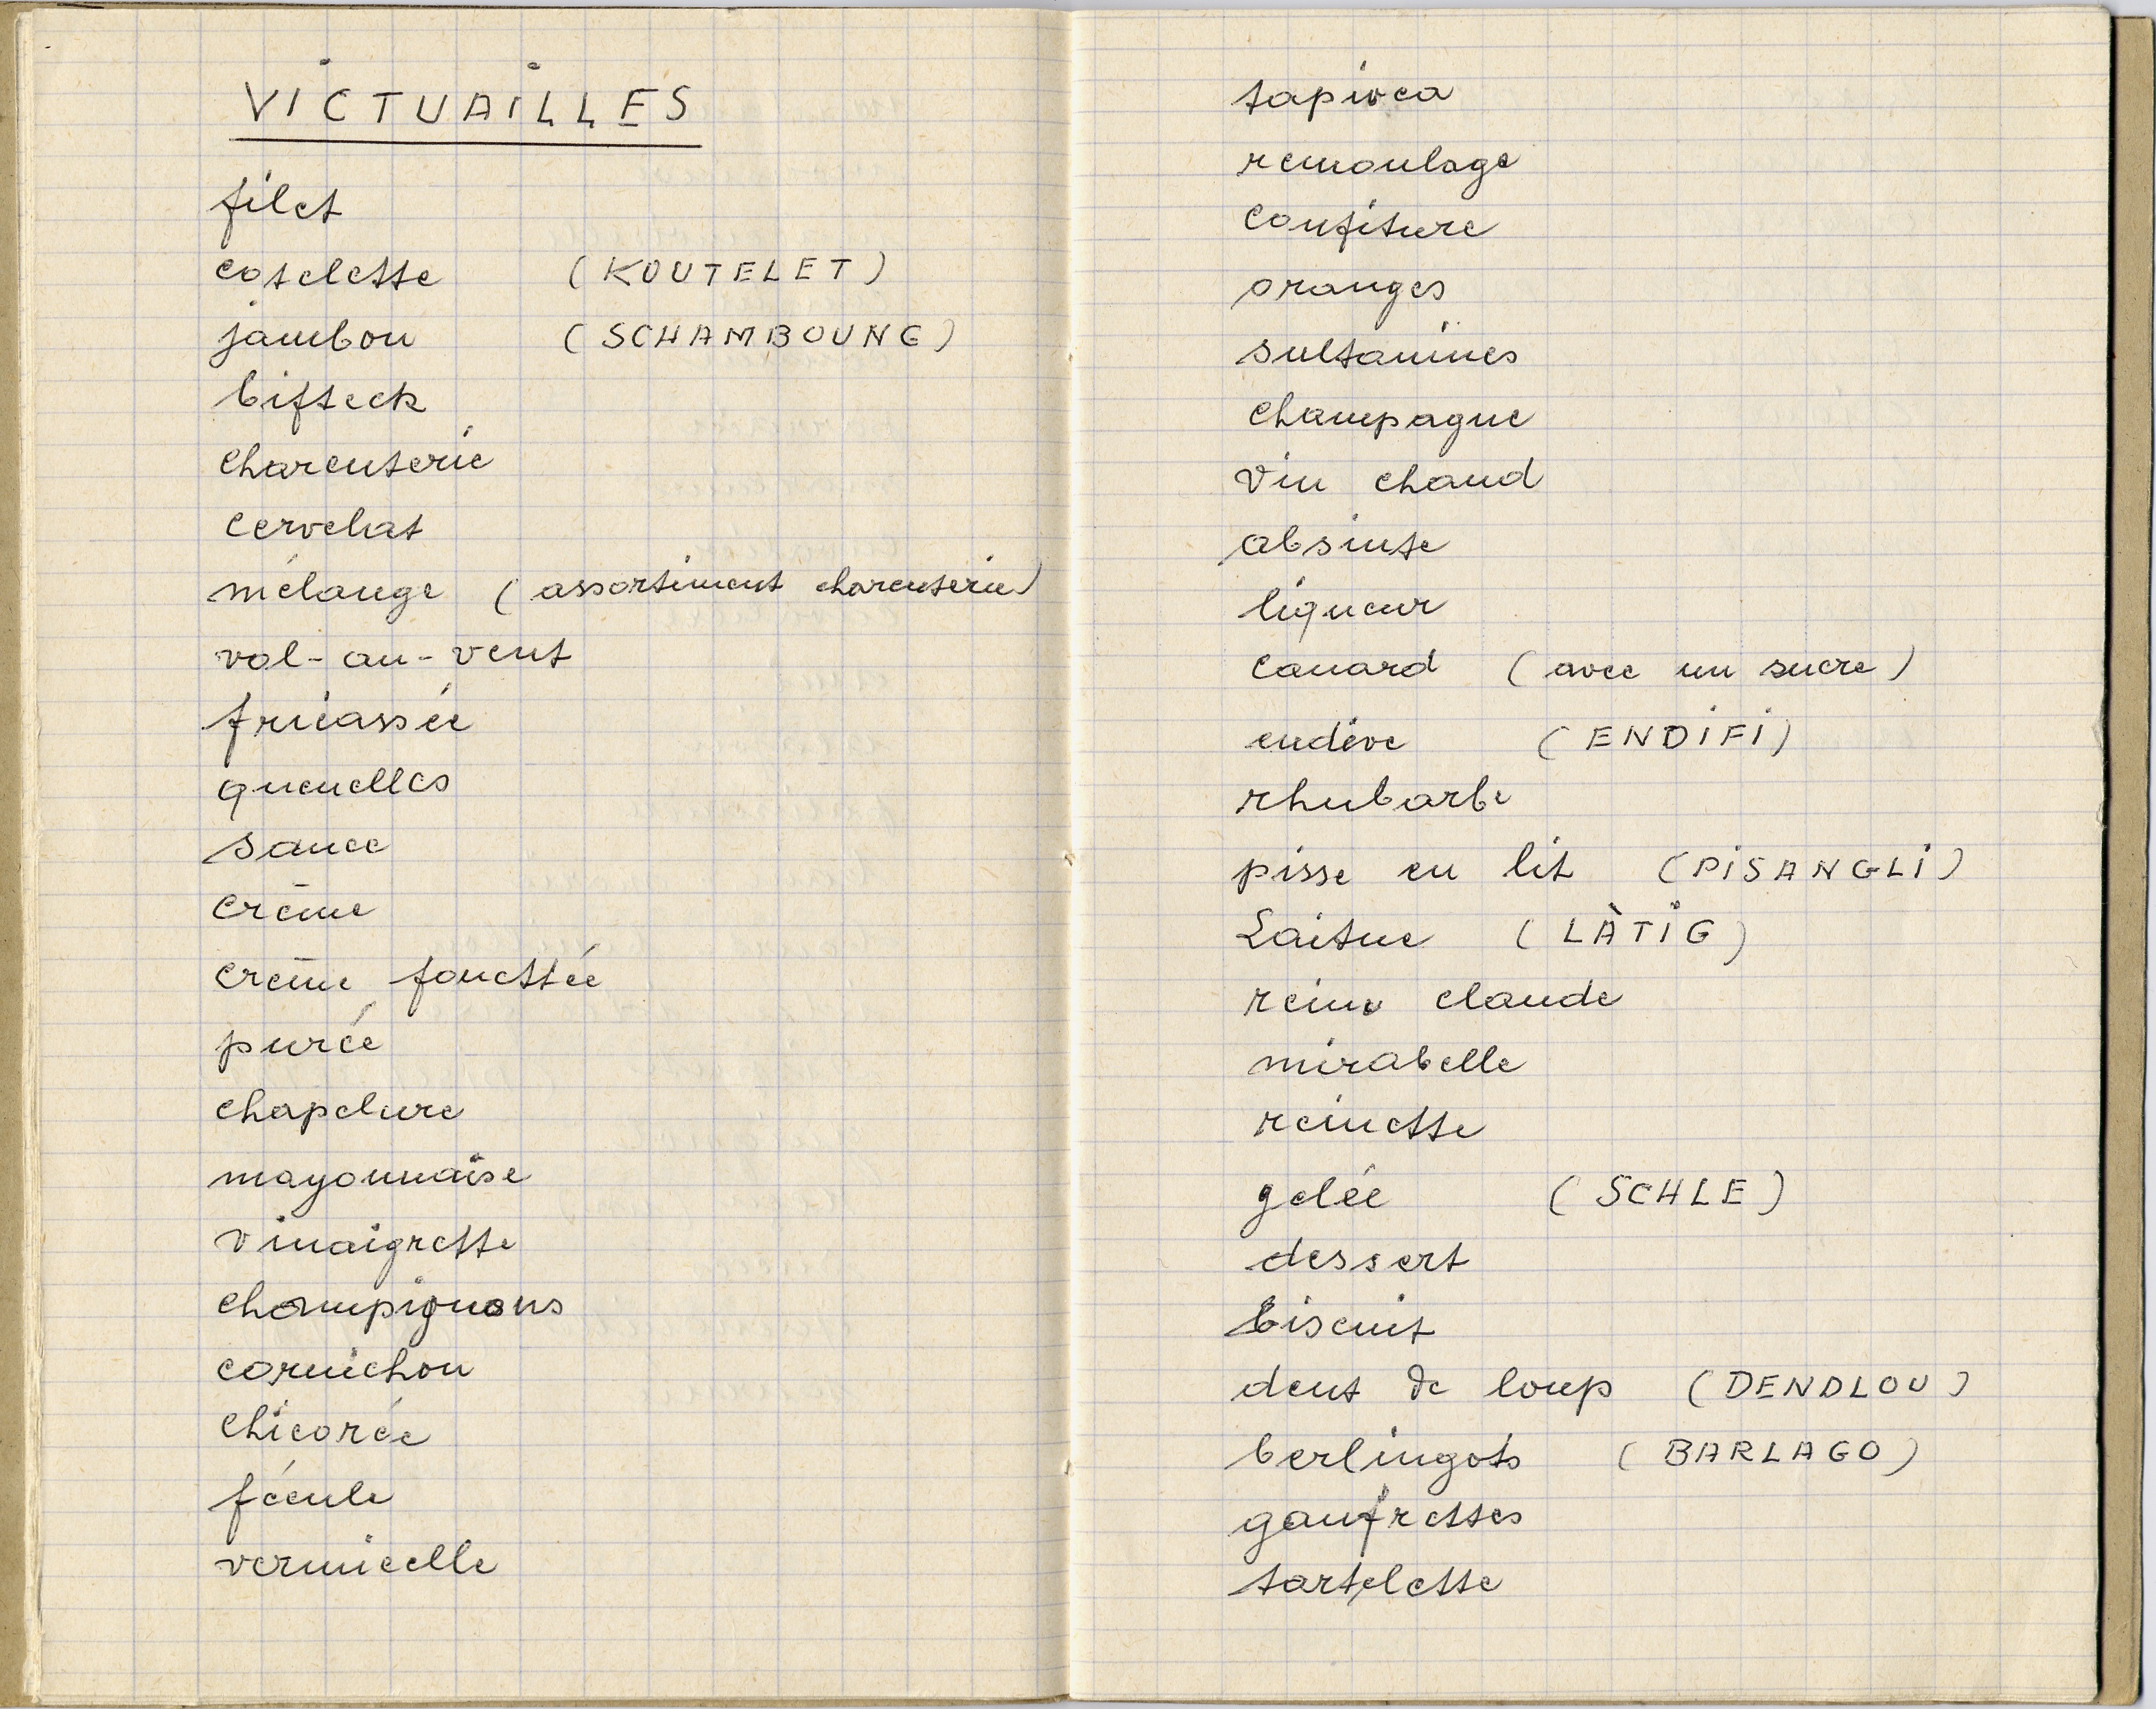 VICTUAILLES
filet
cotelette (KOUTELET)
jambon (SCHAMBOUNG)
bifteck
charcuterie
cervelat
mélange (assortiment charcuterie)
vol-au-vent
fricassée
quenelles
sauce
crème
crème fouettée
purée
chapelure
mayonnaise
vinaigrette
champignons
cornichon
chicorée
fécule
vermicelle
tapioca
remoulage
confiture
oranges
sultanines
champagne
vin chaud
absinte
liqueur
canard (avec un sucre)
endive (ENDIFI)
rhubarbe
pisse en lit (PISANGLI)
Laitue (LÀTIG)
reine claude
mirabelle
reinette
gelée (SCHLE)
dessert
biscuit
dent de loup (DENDLOU)
berlingots (BARLAGO)
gaufrettes
tartelette